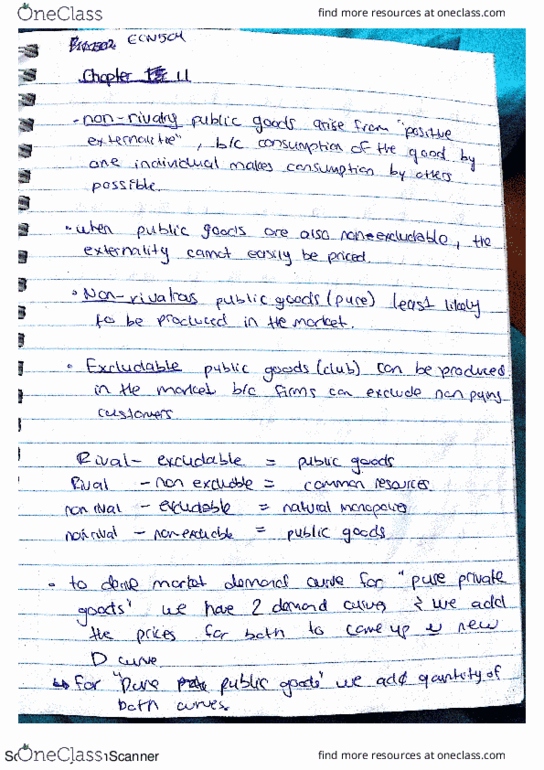 OneClass
find more resources at oneclass.com
ECN504
Chapter 11
- non-rivalry public goods arise from "positive
externalitie", b/c consumption of the good by
one individual makes consumption by others
possible.
• when public goods are also non-excludable, the
externality cannot easily be priced
• Non-rivalrous public goods (pure) least likely
to be produced in the market.
• Excludable public goods (club) can be produced
in the market b/c firms can exclude non paying
customers
Rival - excludable = public goods
Rival - non excluble = common resources
non rival - excludable = natural monopolies
non rival - non-excluble = public goods
• to derive market demand curve for "pure private
goods" we have 2 demand curves & we add
the prices for both to come up w new
D curve
↳ for "pure public goods" we add quantity of
both curves.
OneClass
Scanner
find more resources at oneclass.com